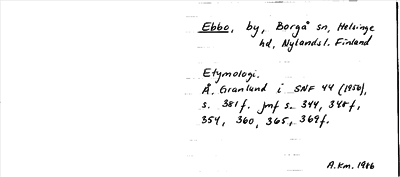 Ebbo, by, Borgå sn, Helsinge
hd, Nylands l. Finland
Etymologi.
Å. Granlund i SNF 44 (1956),
s. 381 f. jmf s. 344, 348 f,
354, 360, 365, 369 f.
A. Km. 1986